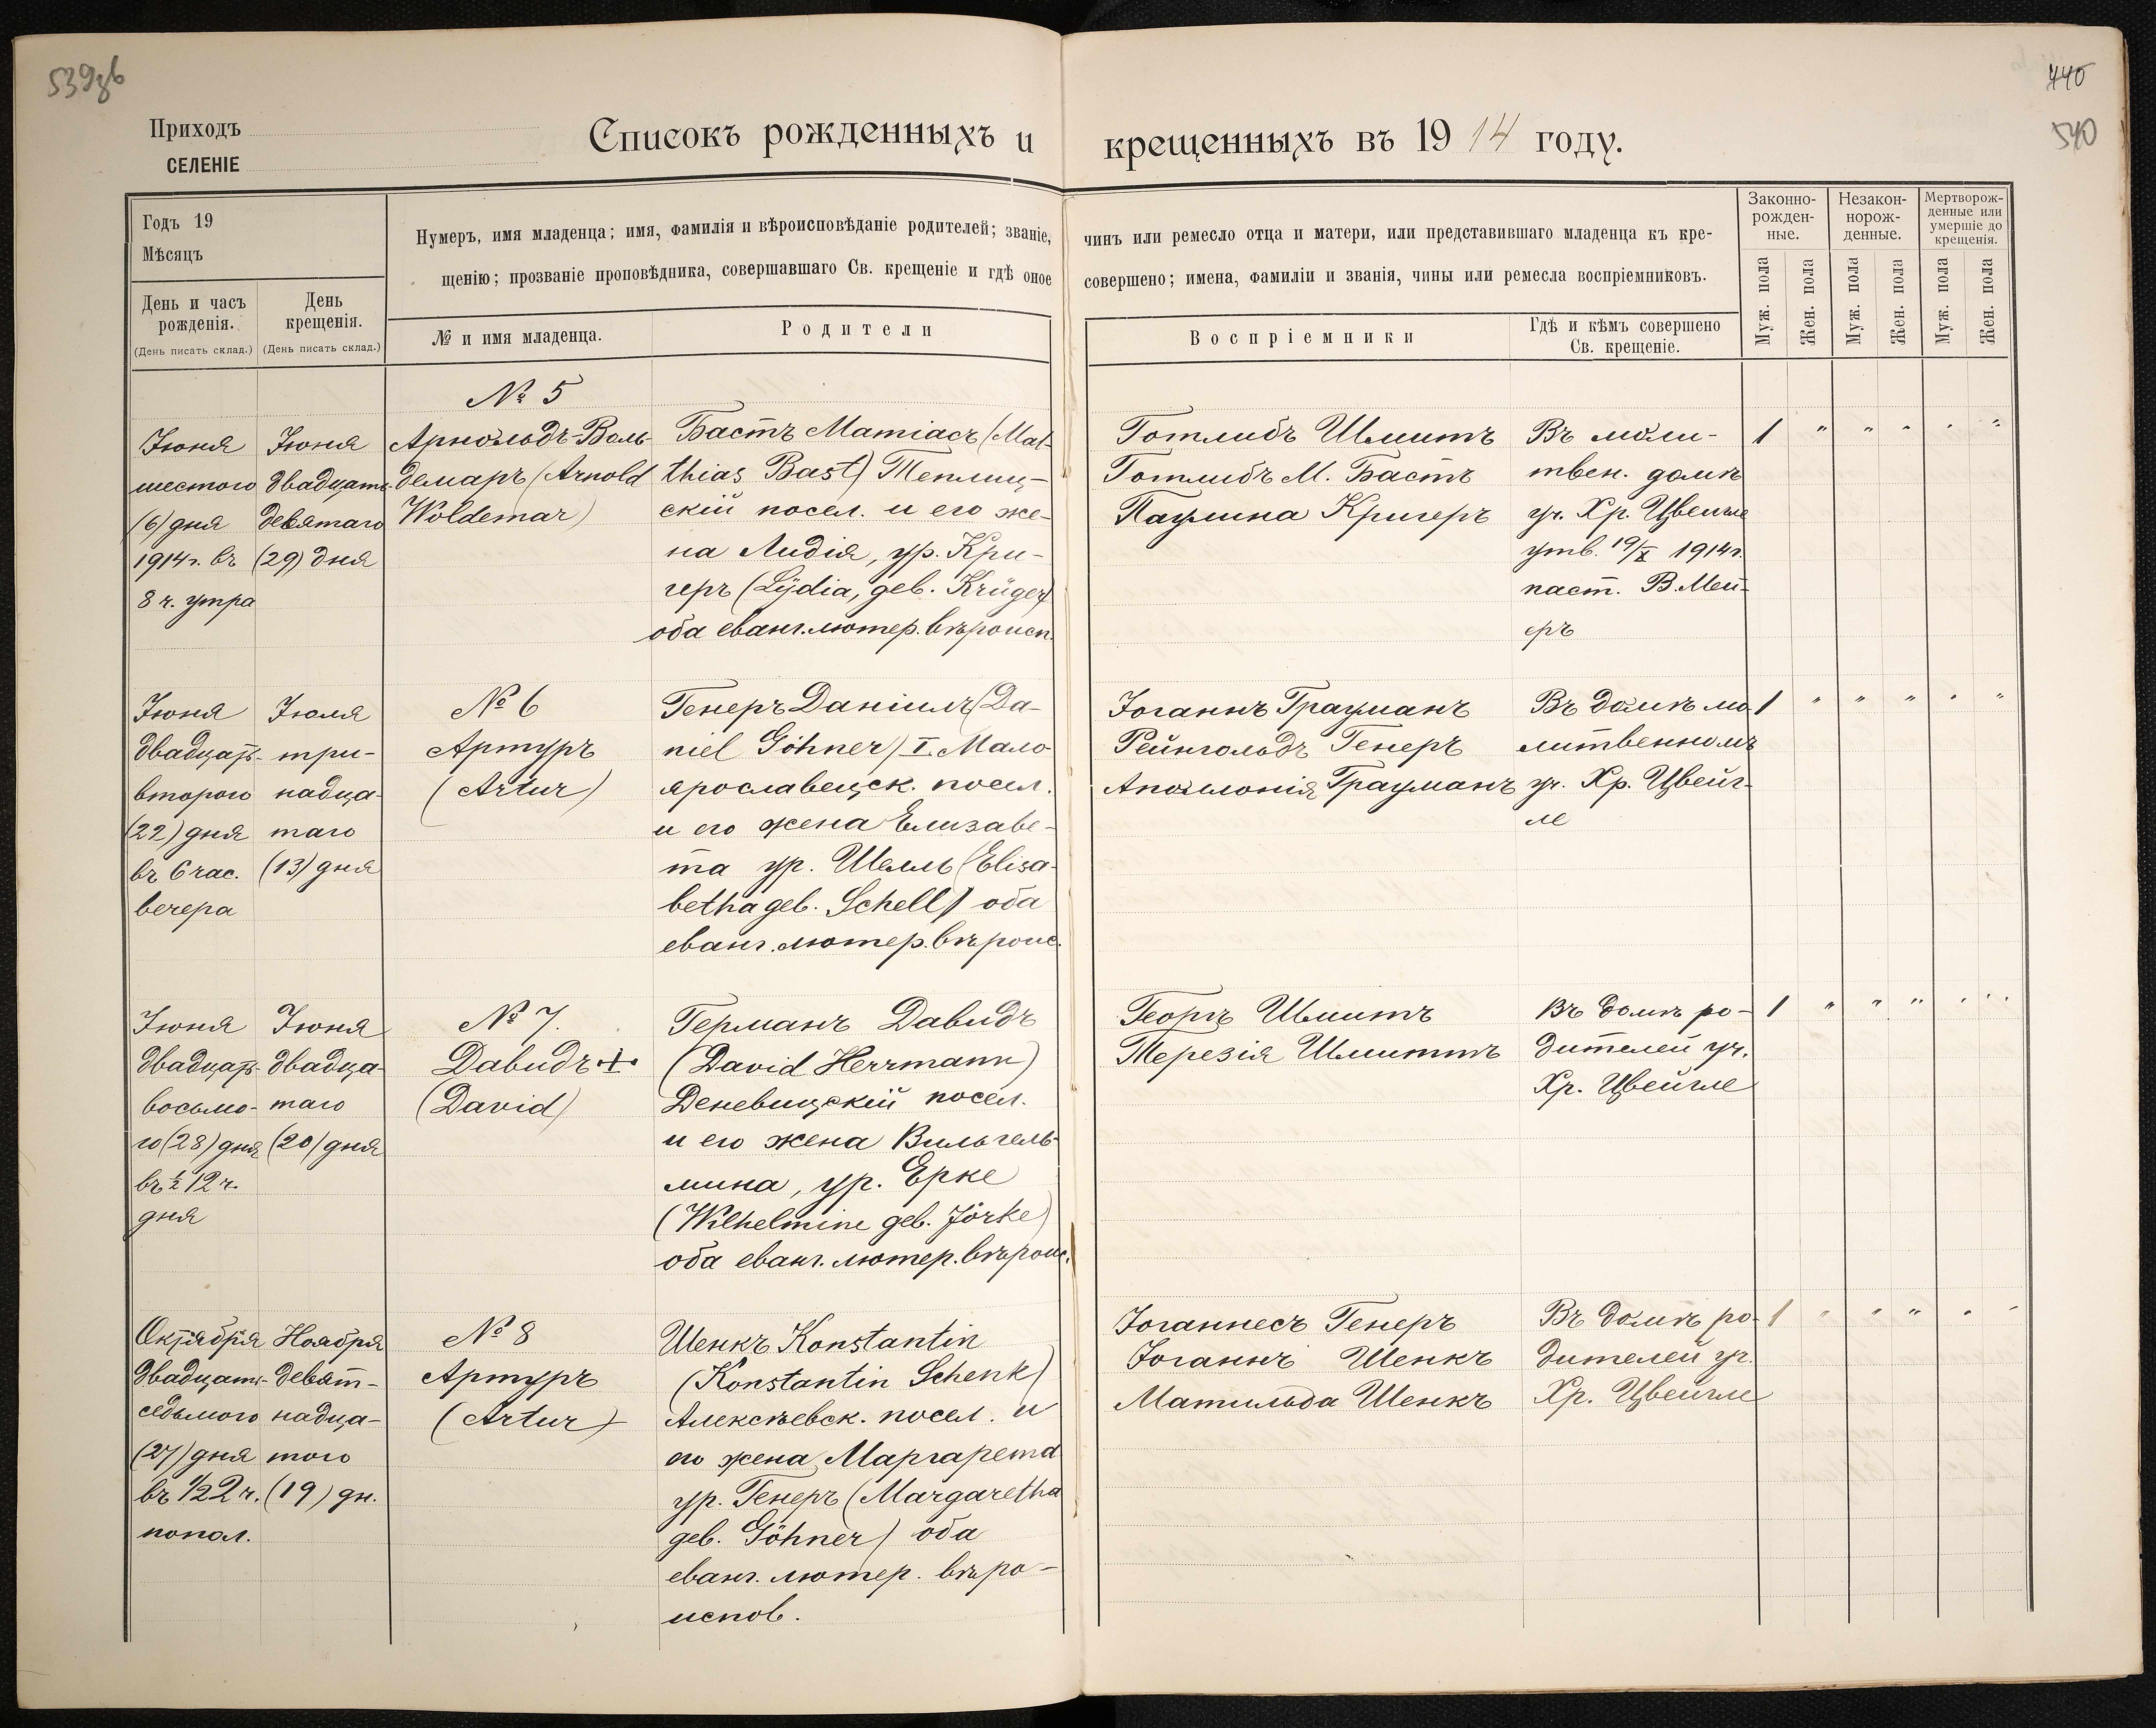 539зв
440
540
Приходъ
СЕЛЕНІЕ
Списокъ рожденныхъ и крещенныхъ въ 1914 году.
Годъ 19
Мѣсяцъ
День и часъ рожденія.
(День писать склад.)
День крещенія.
(День писать склад.)
Нумеръ, имя младенца; имя, фамилія и вѣроисповѣданіе родителей; званіе, чинъ или ремесло отца и матери, или представившаго младенца къ кре-
щенію; прозваніе проповѣдника, совершавшаго Св. крещеніе и гдѣ оное совершено; имена, фамиліи и званія, чины или ремесла воспріемниковъ.
№ и имя младенца.
Родители
Воспріемники
Гдѣ и кѣмъ совершено
Св. крещеніе.
Законно-
рожден-
ные.
Незакон-
норож-
денные.
Мертворож-
денные или
умершіе до
крещенія.
Муж. пола
Жен. пола
Муж. пола
Жен. пола
Муж. пола
Жен. пола
Іюня
шестого
(6) дня
1914г. въ
8 ч. утра
Іюня
двадцать
девятаго
(29) дня
№ 5
Арнольдъ-Воль-
демаръ (Arnold
Woldemar)
Бастъ Матіасъ (Mat-
thias Bast) Теплиц-
скій посел. и его же-
на Лидія, ур. Кри-
геръ (Lydia, geb. Krüger)
оба еванг. лютер. вѣроисп.
Готлибъ Шмитъ
Готлибъ М. Бастъ
Паулина Кригеръ
Въ моли-
твен. домѣ
уч. Хр. Цвейгле
утв. 19/X 1914г.
паст. В. Мей-
еръ
1 " " " " "
Іюня
двадцать-
второго
(22) дня
въ 6 час.
вечера
Іюля
три-
надца-
таго
(13) дня
№ 6
Артуръ
(Artur)
Генеръ Даніилъ (Da-
niel Göhner) I. Мало-
ярославецск. посел.
и его жена Елизаве-
та ур. Шелль (Elisa-
betha geb. Schell) оба
еванг. лютер. вѣроис.
Іоганнъ Трауманъ
Рейнгольдъ Генеръ
Аполлонія Трауманъ
Въ домѣ мо-
литвенномъ
уч. Хр. Цвейг-
ле
1 " " " " "
Іюня
двадцать-
восьмо-
го (28) дня
въ ½ 12 ч.
дня
Іюня
двадца-
таго
(20) дня
№ 7.
Давидъ +
(David)
Германъ Давидъ
(David Herrmann)
Деневицскій посел.
и его жена Вильгель-
мина, ур. Ерке
(Wilhelmine geb. Jörke)
оба еванг. лютер. вѣроис.
Георгъ Шмитъ
Терезія Шмиттъ
Въ домѣ ро-
дителей уч.
Хр. Цвейгле
1 " " " " "
Октября
двадцать-
седьмого
(27) дня
въ ½2 ч.
попол.
Ноября
девят-
надца-
того
(19) дн.
№ 8
Артуръ
(Artur)
Шенкъ Konstantin
(Konstantin Schenk)
Алексѣевск. посел. и
его жена Маргарета
ур. Генеръ (Margaretha
geb. Göhner) оба
еванг. лютер. вѣро-
испов.
Іоганнесъ Генеръ
Іоганнъ Шенкъ
Матильда Шенкъ
Въ домѣ ро-
дителей уч.
Хр. Цвейгле
1 " " " " "